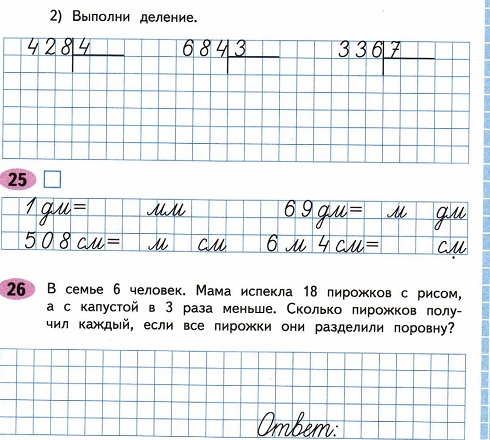 2) Выполни деление.
428 4 684 3 336 7
25
1 дм= мм 69 дм= м дм
508 см= м см 6 м 4 см= см
26 В семье 6 человек. Мама испекла 18 пирожков с рисом,
а с капустой в 3 раза меньше. Сколько пирожков полу-
чил каждый, если все пирожки они разделили поровну?
Ответ: